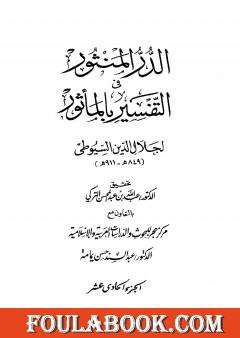 الدُّرُّ المَنْثُور
في
التَّفْسِيرِ بِالمَأْثُورِ
لجلال الدين السيوطي
(٨٤٩هـ - ٩١١هـ)
تحقيق
الدكتور/عبد الله بن عبد المحسن التركي
بالتعاون مع
مركز هجر للبحوث والدراسات العربية والإسلامية
الدكتور/عبد السند حسن يمامة
الجزء الحادي عشر
FOULABOOK.COM